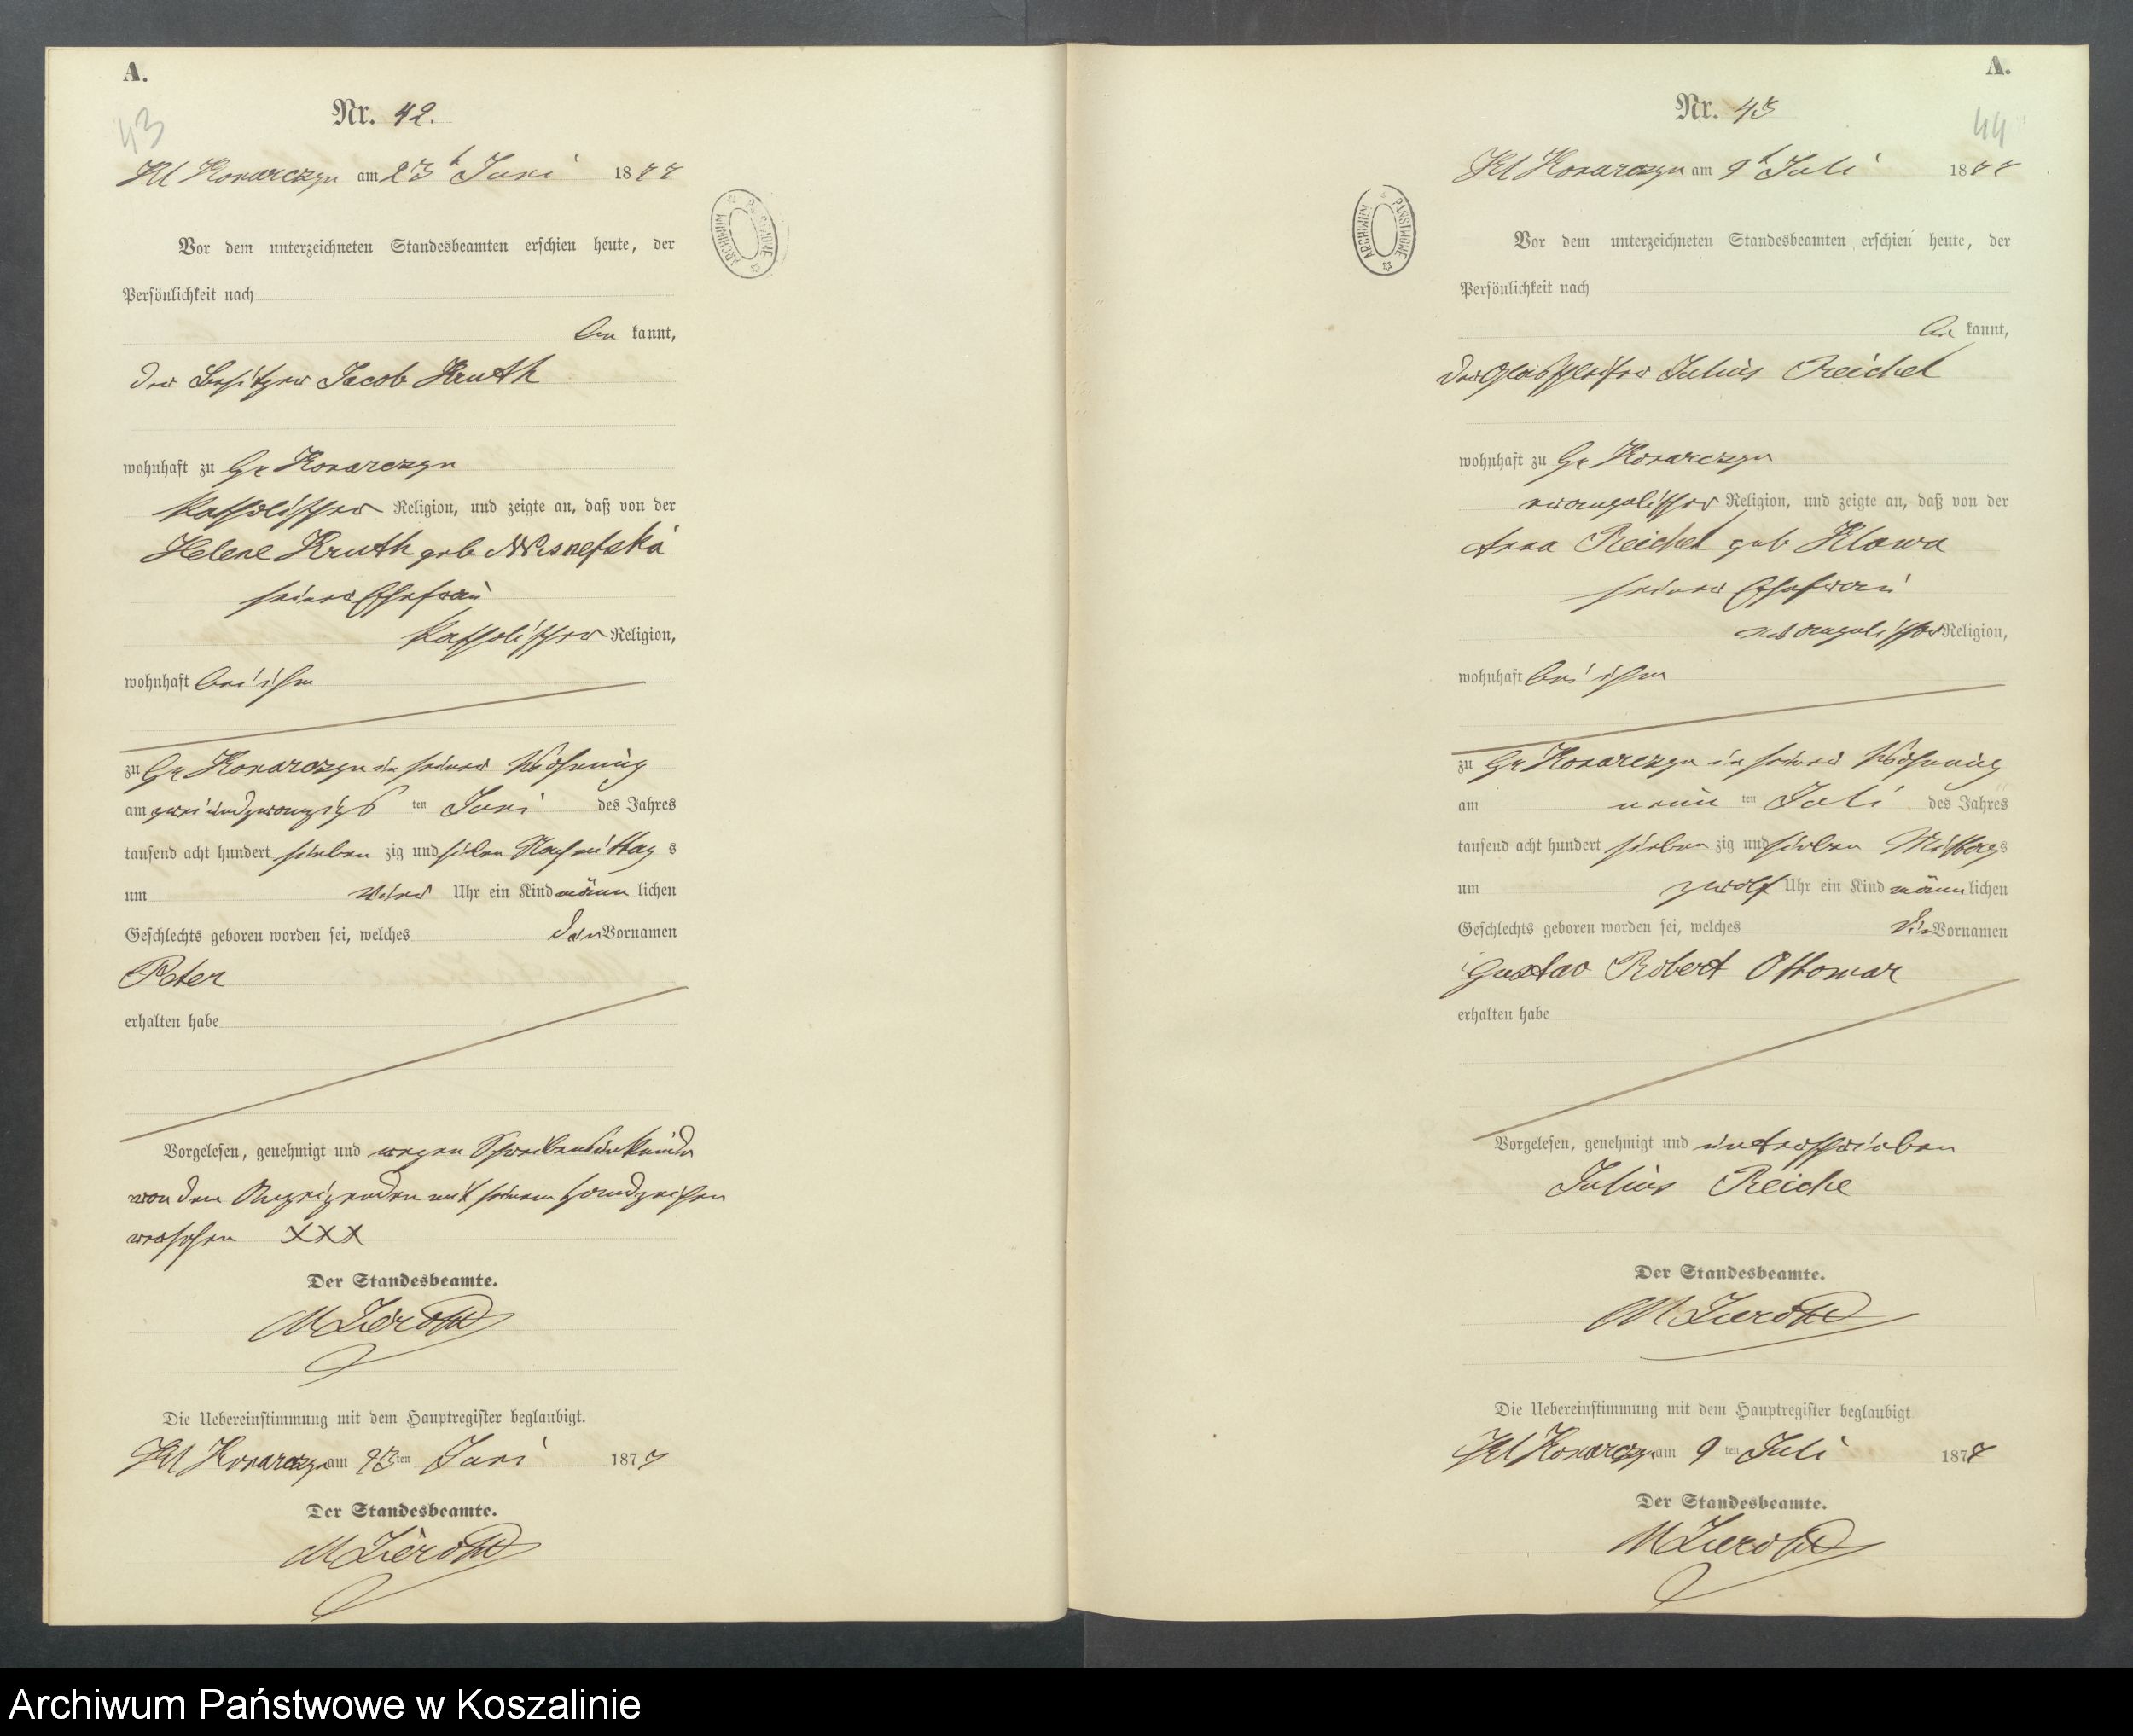 A.
Nr. 42.
43
Kl Konarczyn am 23t Juni 1877
Vor dem unterzeichneten Standesbeamten erschien heute, der
Persönlichkeit nach
be kannt,
der Besitzer Jacob Kruth
wohnhaft zu Gr Konarczyn
katholischer Religion, und zeigte an, daß von der
Helene Kruth geb
seiner Ehefrau
katholischer Religion,
wohnhaft bei ihm
zu Gr Konarczyn in seiner Wohnung
am zweiundzwanzigs ten Juni des Jahres
tausend acht hundert sieben zig und sieben Nachmittag s
um vier Uhr ein Kind männ lichen
Geschlechts geboren worden sei, welches den Vornamen
Peter
erhalten habe
Vorgelesen, genehmigt und wegen Schreibensunkunde
von dem Anzeigenden mit seinem Handzeichen
versehen XXX
Der Standesbeamte.
Die Uebereinstimmung mit dem Hauptregister beglaubigt.
Kl Konarczyn am 23ten Juni 1877
Der Standesbeamte.
A.
Nr. 43
44
Kl Konarczyn am 9t Juli 1877
Vor dem unterzeichneten Standesbeamten erschien heute, der
Persönlichkeit nach
be kannt,
der Glasschleifer Julius Reichel
wohnhaft zu Gr Konarczyn
evangelischer Religion, und zeigte an, daß von der
Anna Reichel geb Klawa
seiner Ehefrau
evangelischer Religion,
wohnhaft bei ihm
zu Gr Konarczyn in seiner Wohnung
am neun ten Juli des Jahres
tausend acht hundert sieben zig und sieben Mittags
um zwölf Uhr ein Kind männ lichen
Geschlechts geboren worden sei, welches die Vornamen
Gustav Robert Ottomar
erhalten habe
Vorgelesen, genehmigt und unterschrieben
Julius Reiche
Der Standesbeamte.
Die Uebereinstimmung mit dem Hauptregister beglaubigt
Kl Konarczyn am 9 ten Juli 1877
Der Standesbeamte.
ARCHIWUM PAŃSTWOWE
Archiwum Państwowe w Koszalinie